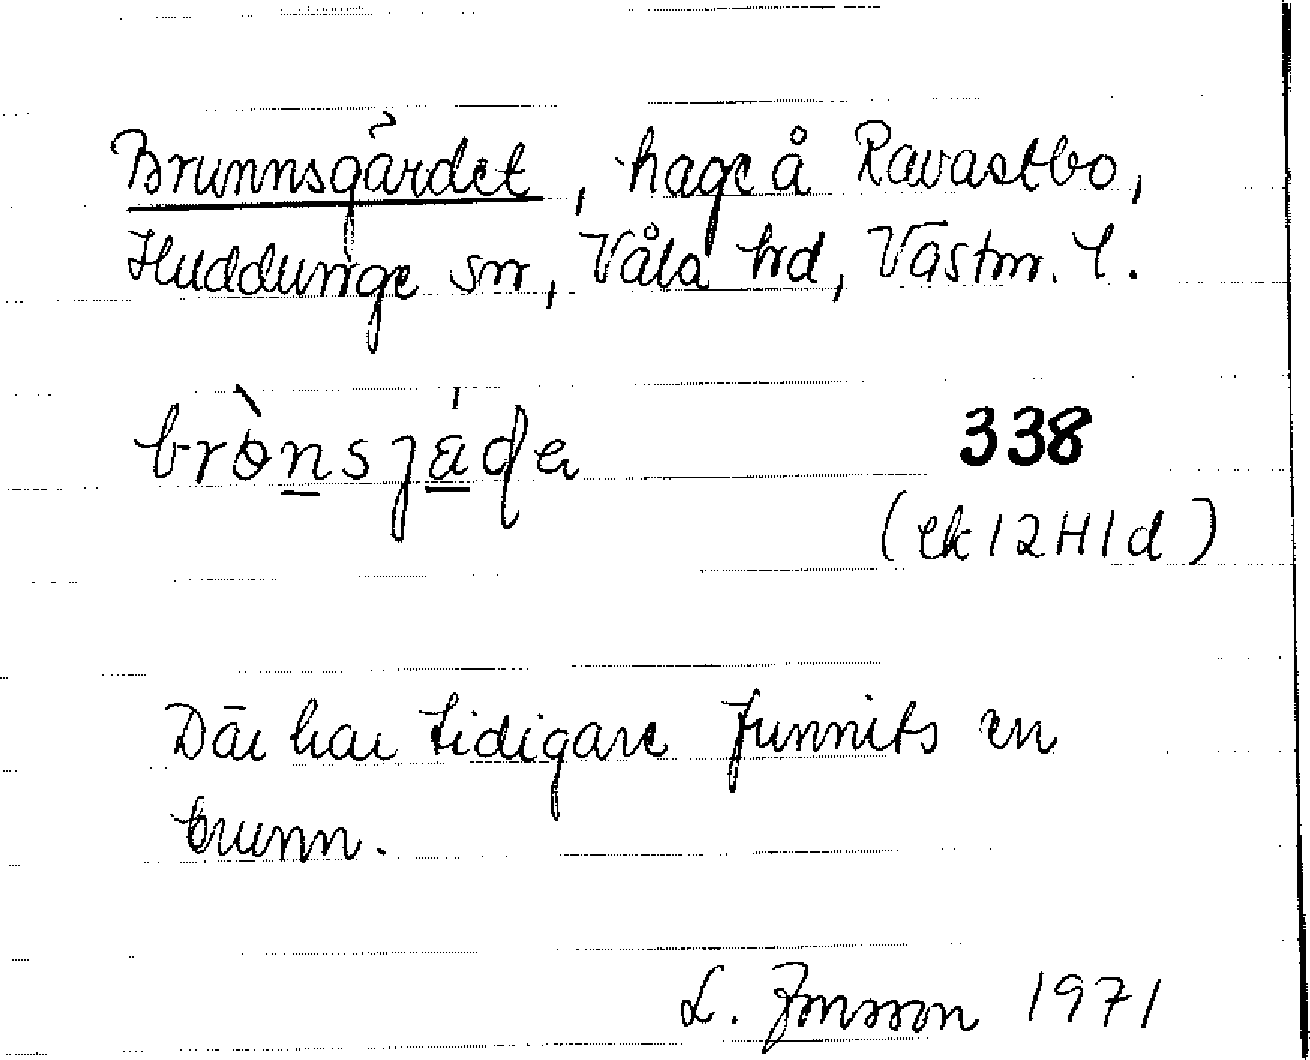 Brunnsgärdet, hage å Ravastbo,
Huddunge sn, Våla hd, Västm. l.
brò̱nsjä́ḍa
338
(ek 12H1d)
Där har tidigare funnits en
brunn.
L. Jonsson 1971